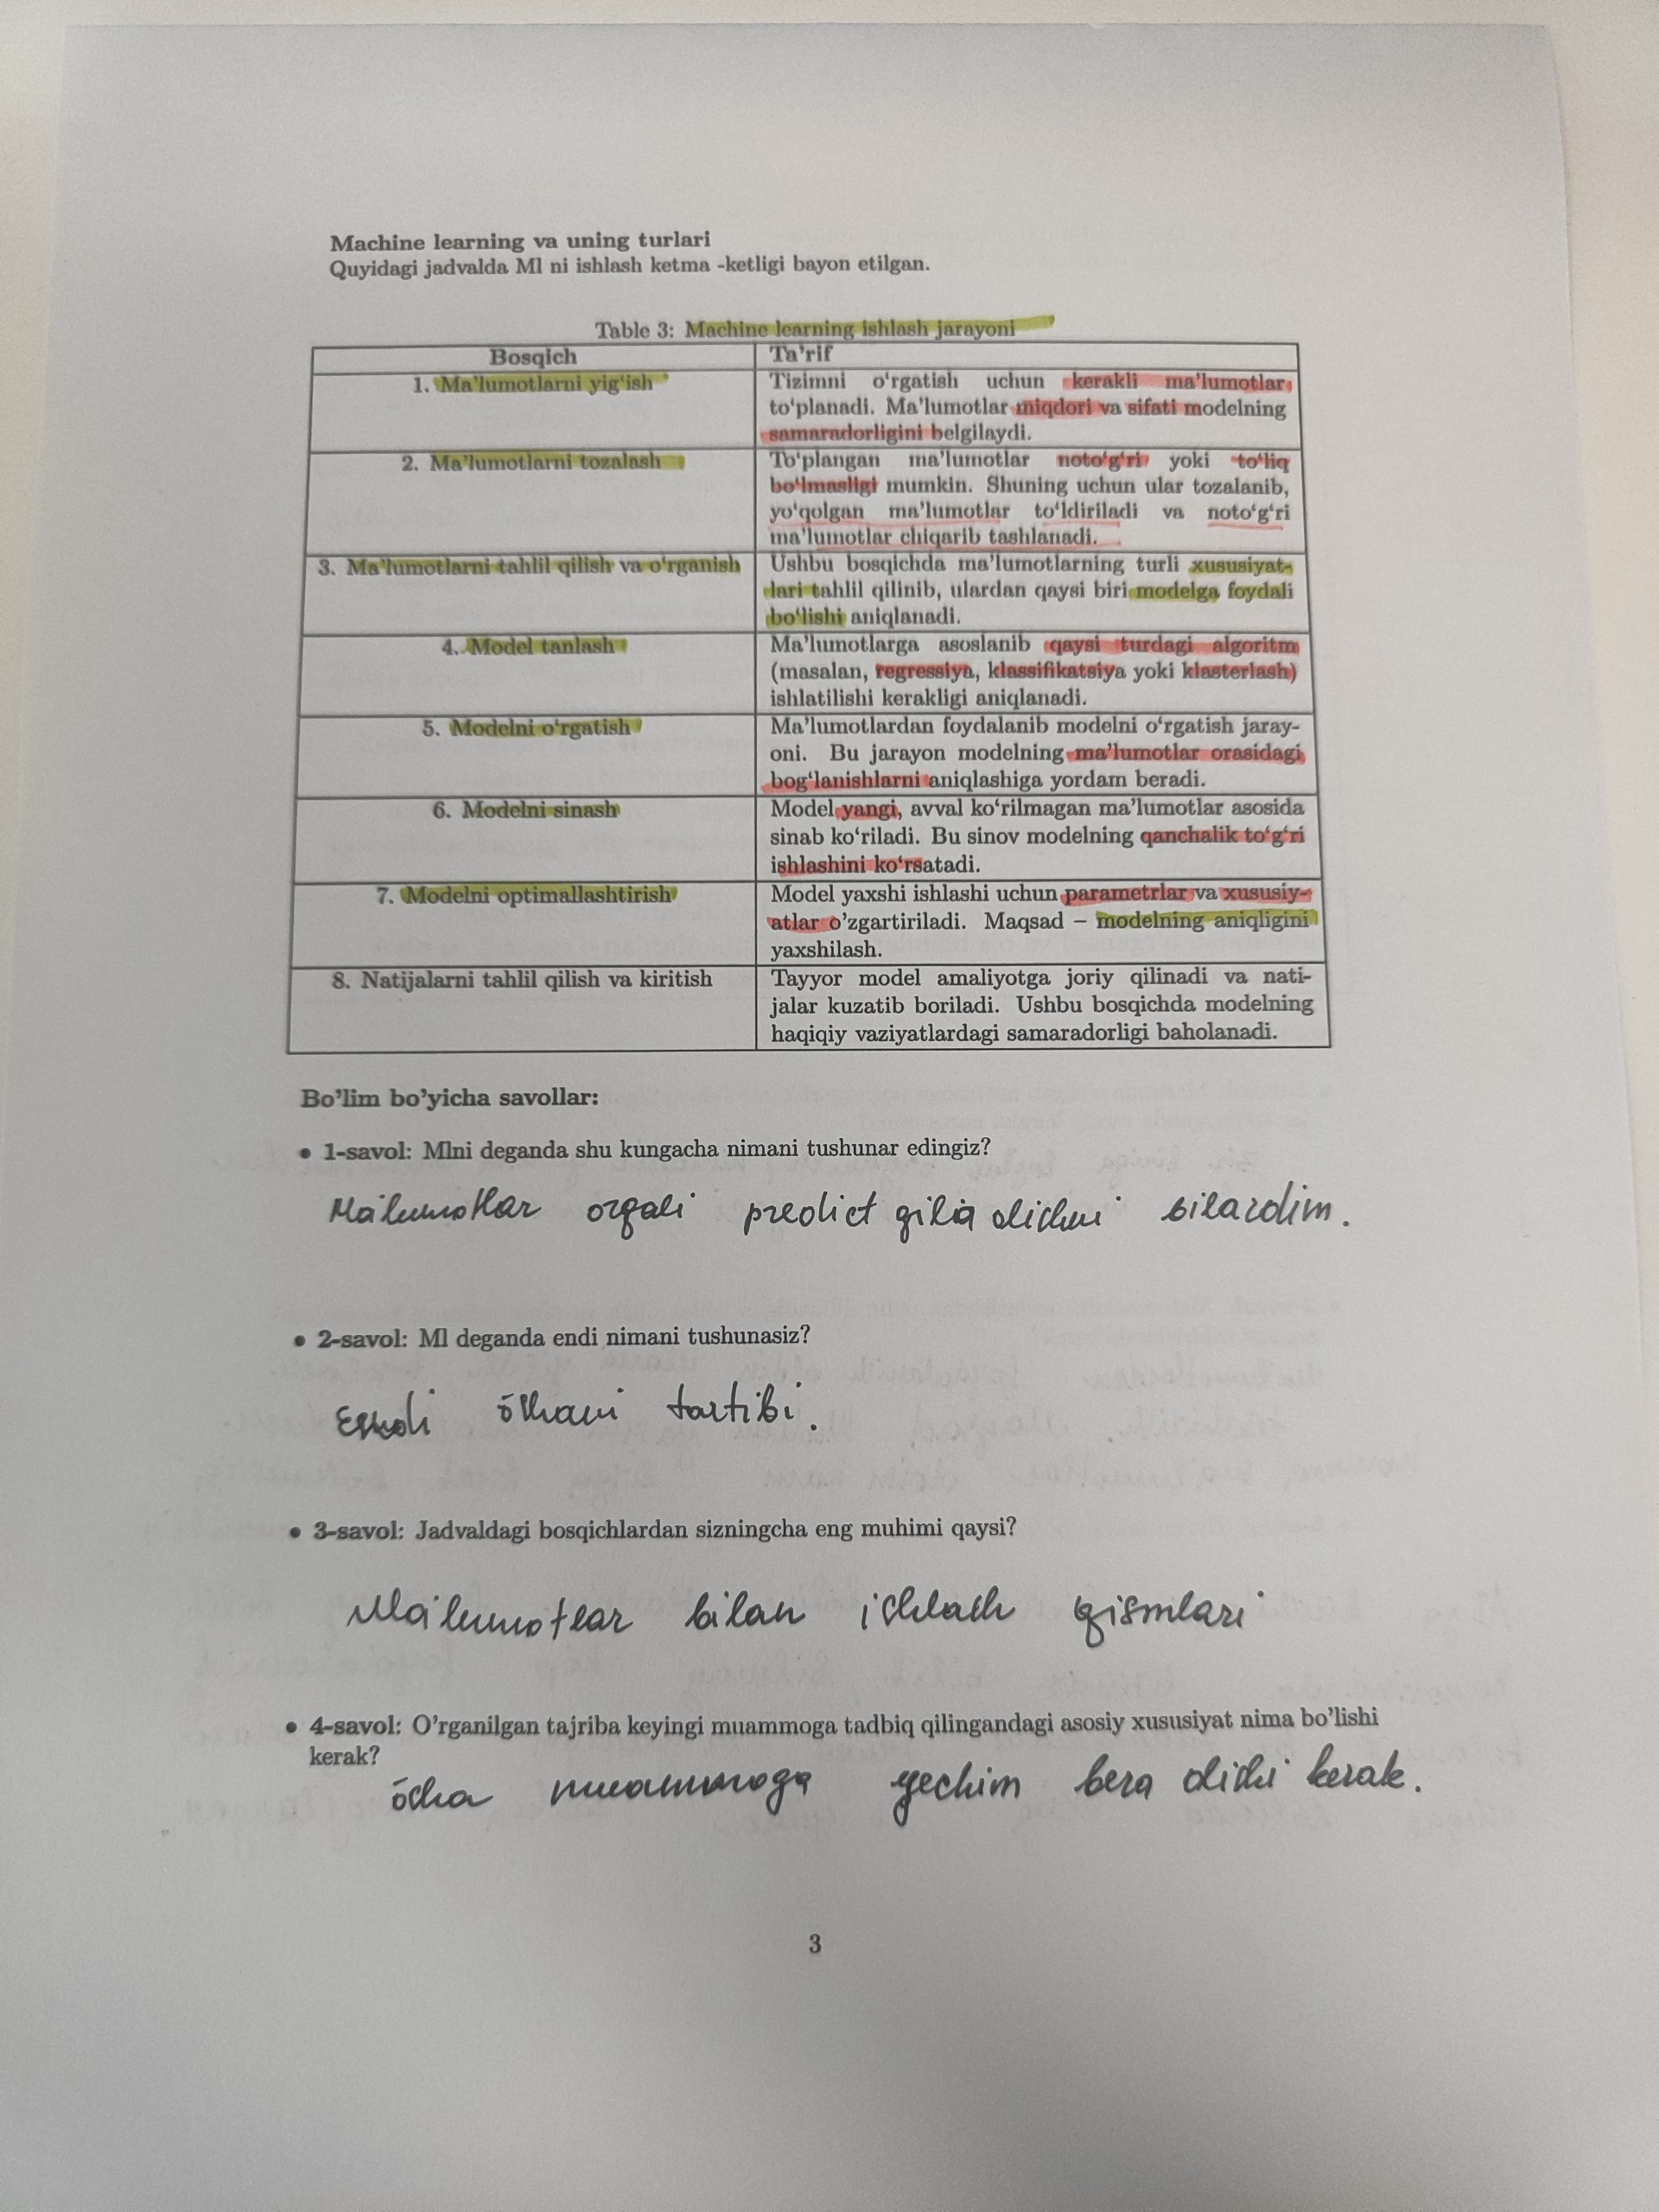 Machine learning va uning turlari
Quyidagi jadvalda Ml ni ishlash ketma -ketligi bayon etilgan.
Table 3: Machine learning ishlash jarayoni
Bosqich
Ta'rif
1. Ma'lumotlarni yig'ish
Tizimni o'rgatish uchun kerakli ma'lumotlar
to'planadi. Ma'lumotlar miqdori va sifati modelning
samaradorligini belgilaydi.
2. Ma'lumotlarni tozalash
To'plangan ma'lumotlar noto'g'ri yoki to'liq
bo'lmasligi mumkin. Shuning uchun ular tozalanib,
yo'qolgan ma'lumotlar to'ldiriladi va noto'g'ri
ma'lumotlar chiqarib tashlanadi.
3. Ma'lumotlarni tahlil qilish va o'rganish
Ushbu bosqichda ma'lumotlarning turli xususiyat-
lari tahlil qilinib, ulardan qaysi biri modelga foydali
bo'lishi aniqlanadi.
4. Model tanlash
Ma'lumotlarga asoslanib qaysi turdagi algoritm
(masalan, regressiya, klassifikatsiya yoki klasterlash)
ishlatilishi kerakligi aniqlanadi.
5. Modelni o'rgatish
Ma'lumotlardan foydalanib modelni o'rgatish jaray-
oni. Bu jarayon modelning ma'lumotlar orasidagi
bog'lanishlarni aniqlashiga yordam beradi.
6. Modelni sinash
Model yangi, avval ko'rilmagan ma'lumotlar asosida
sinab ko'riladi. Bu sinov modelning qanchalik to'g'ri
ishlashini ko'rsatadi.
7. Modelni optimallashtirish
Model yaxshi ishlashi uchun parametrlar va xususiy-
atlar o'zgartiriladi. Maqsad – modelning aniqligini
yaxshilash.
8. Natijalarni tahlil qilish va kiritish
Tayyor model amaliyotga joriy qilinadi va nati-
jalar kuzatib boriladi. Ushbu bosqichda modelning
haqiqiy vaziyatlardagi samaradorligi baholanadi.
Bo'lim bo'yicha savollar:
• 1-savol: Mlni deganda shu kungacha nimani tushunar edingiz?
Ma'lumotlar orqali predict qilia olishni bilardim.
• 2-savol: Ml deganda endi nimani tushunasiz?
o'shani tartibi.
• 3-savol: Jadvaldagi bosqichlardan sizningcha eng muhimi qaysi?
Ma'lumotlar bilan ishlash qismlari
• 4-savol: O'rganilgan tajriba keyingi muammoga tadbiq qilingandagi asosiy xususiyat nima bo'lishi
kerak?
o'sha muammoga yechim bera olishi kerak.
3